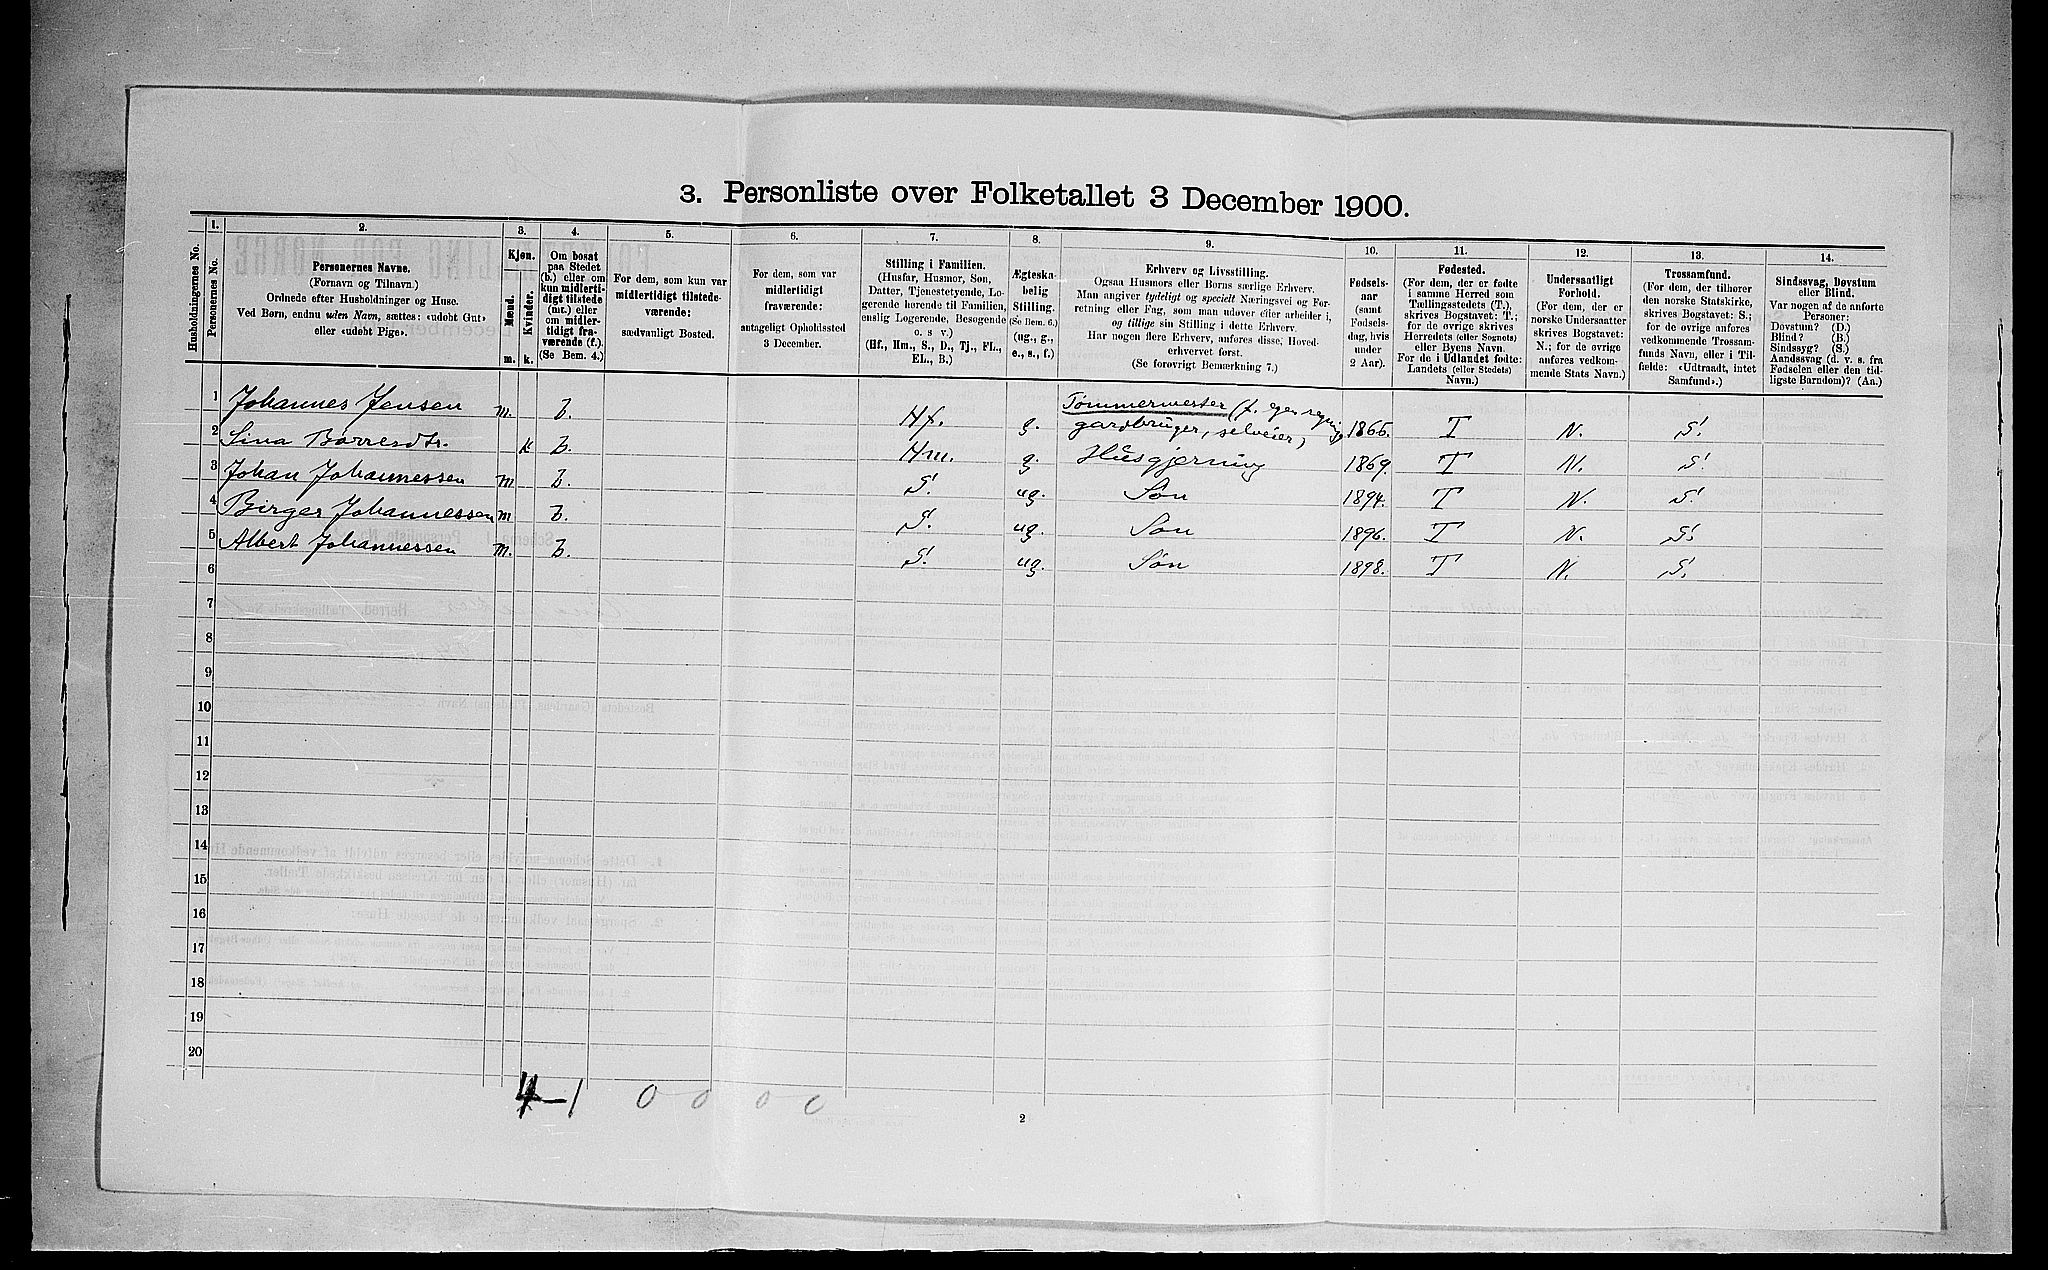 3. Personliste over Folketallet 3 December 1900.
Husholdningernes No.
1.
Personernes No.
2.
Personernes Navne.
(Fornavn og Tilnavn.)
Ordnede efter Husholdninger og Huse.
Ved Børn, endnu uden Navn, sættes: «udøbt Gut»
eller «udøbt Pige».
3.
Kjøn.
Mænd.
Kvinder.
m. k.
4.
Om bosat
paa Stedet
(b.) eller om
kun midlerti-
digt tilstede
(mt.) eller
om midler-
tidigt fra-
værende (f.).
(Se Bem. 4.)
5.
For dem, som kun var
midlertidigt tilstede-
værende:
sædvanligt Bosted.
6.
For dem, som var
midlertidigt
fraværende:
antageligt Opholdssted
3 December.
7.
Stilling i Familien.
(Husfar, Husmor, Søn,
Datter, Tjenestetyende, Lo-
gerende hørende til Familien,
enslig Logerende, Besøgende
o. s v.)
(Hf., Hm., S., D., Tj., FL.,
EL., B.)
8.
Ægteska-
belig
Stilling.
(Se Bem. 6.)
(ug., g.,
e., s., f.)
9.
Erhverv og Livsstilling.
Ogsaa Husmors eller Børns særlige Erhverv.
Man angiver tydeligt og specielt Næringsvei og For-
retning eller Fag, som man udøver eller arbeider i,
og tillige sin Stilling i dette Erhverv.
Har nogen flere Erhverv, anføres disse, Hoved-
erhvervet først.
(Se forøvrigt Bemærkning 7.)
10.
Fødsels-
aar
(samt
Fødsels-
dag, hvis
under
2 Aar).
11.
Fødested.
(For dem, der er fødte
i samme Herred som
Tællingsstedets (T.),
skrives Bogstavet: T.;
for de øvrige skrives
Herredets (eller Sognets)
eller Byens Navn.
For de i Udlandet fødte:
Landets (eller Stedets)
Navn.)
12.
Undersaatligt
Forhold.
(For dem, der er
norske Undersaatter
skrives Bogstavet:
N.; for de øvrige
anføres vedkom-
mende Stats Navn.)
13.
Trossamfund.
(For dem, der tilhører
den norske Statskirke,
skrives Bogstavet: S.;
for de øvrige anføres
vedkommende Trossam-
funds Navn, eller i Til-
fælde: «Udtraadt, intet
Samfund».)
14.
Sindssvag, Døvstum
eller Blind.
Var nogen af de anførte
Personer:
Døvstum? (D.)
Blind? (B.)
Sindssyg? (S.)
Aandssvag (d. v. s. fra
Fødselen eller den tid-
ligste Barndom)? (Aa.)
1 Johannes Jensen m. b. Hf. g. Tømmermester (f. egen regning) gardbruger, selveier, 1865. T N. S.
2 Sina Borresdtr. k b. Hm. g. Husgjerning 1869. T N. S.
3 Johan Johannessen m b. S. ug. Søn 1894. T N. S.
4 Birger Johannessen m b. S. ug. Søn 1896. T N. S.
5 Albert Johannessen m. b. S. ug. Søn 1898. T N. S.
6
7
8
9
10
11
12
13
14
15
16
17
18
19
20
4-1 0 0 0 0
2